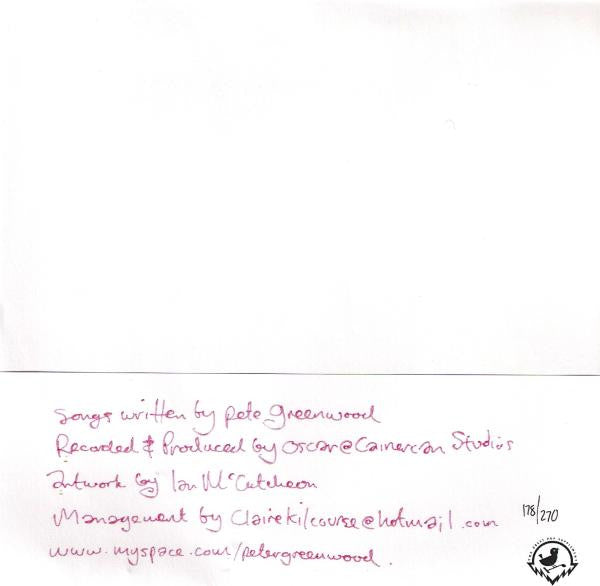 Songs written by pete greenwood
Recorded & Produced by Oscar@Cainercan Studios
Artwork by Ian McCutcheon
Management by Clairekilcourse@hotmail.com
178/270
www.myspace.com/petergreenwood.